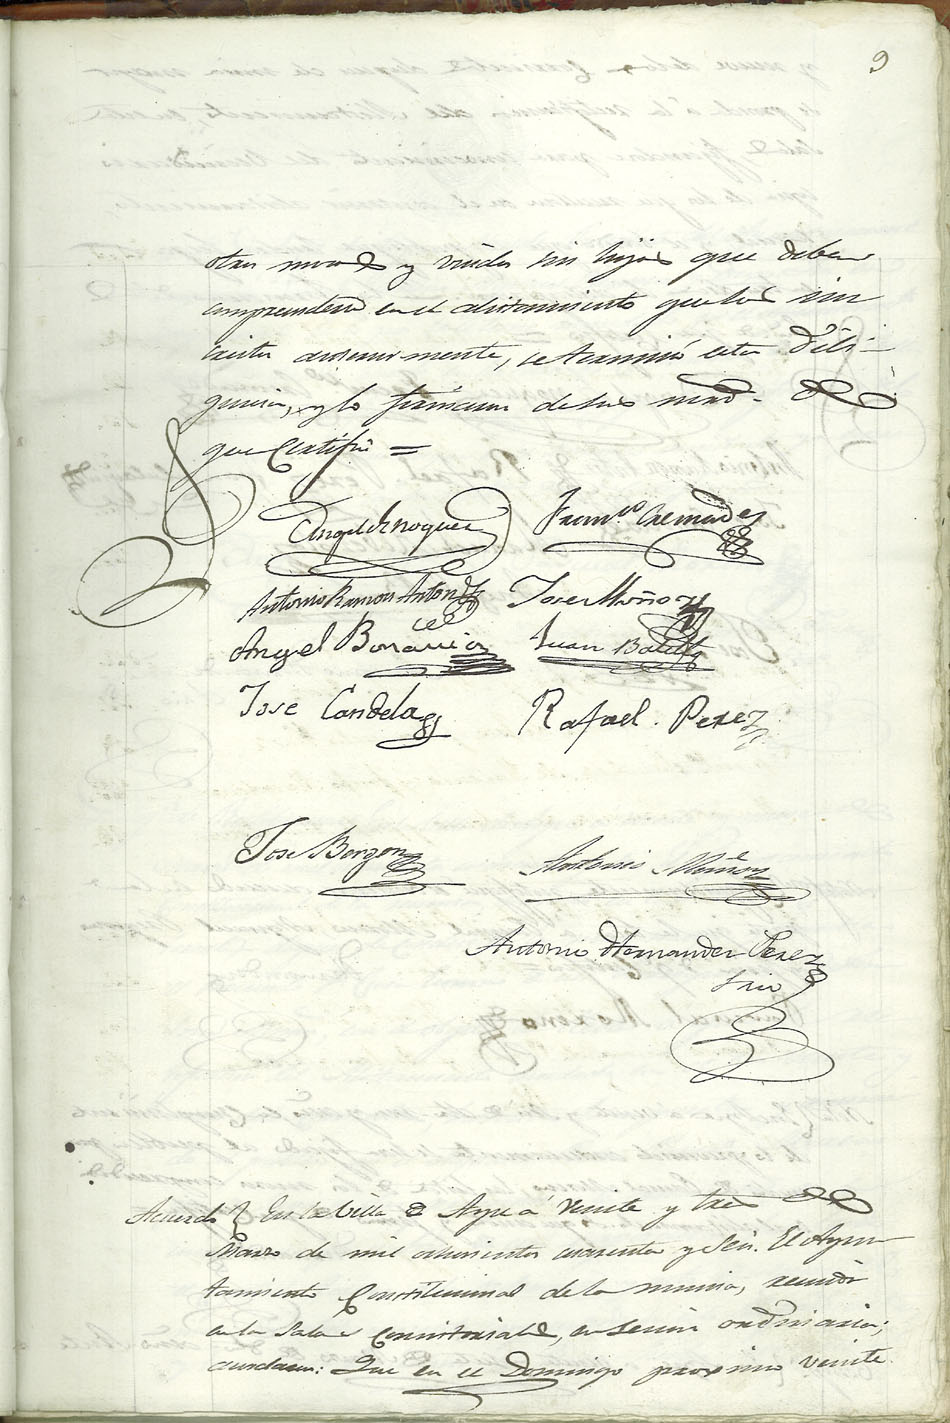 9
otros mozos y viudos sin hijos que deban
comprenderse en el alistamiento que los ins
critos anteriormente, se terminó esta Dili-
gencia, y lo firmaron de sus mrds. de
que Certifico =
Franco Cremades
Antonio Ramon Anton Jose Muñoz
Angel Juan
Jose Candela Rafael Perez
Jose Antonio Muñoz
Antonio Hernandez Perez
Srio
Acuerdo En la Villa de Aspe á veinte y tres de
Marzo de mil ochocientos cuarenta y seis. El Ayun
tamiento Constitucional de la misma, reunido
en la Sala Consistorial, en sesion ordinaria;
acordaron: Que en el Domingo proximo veinte